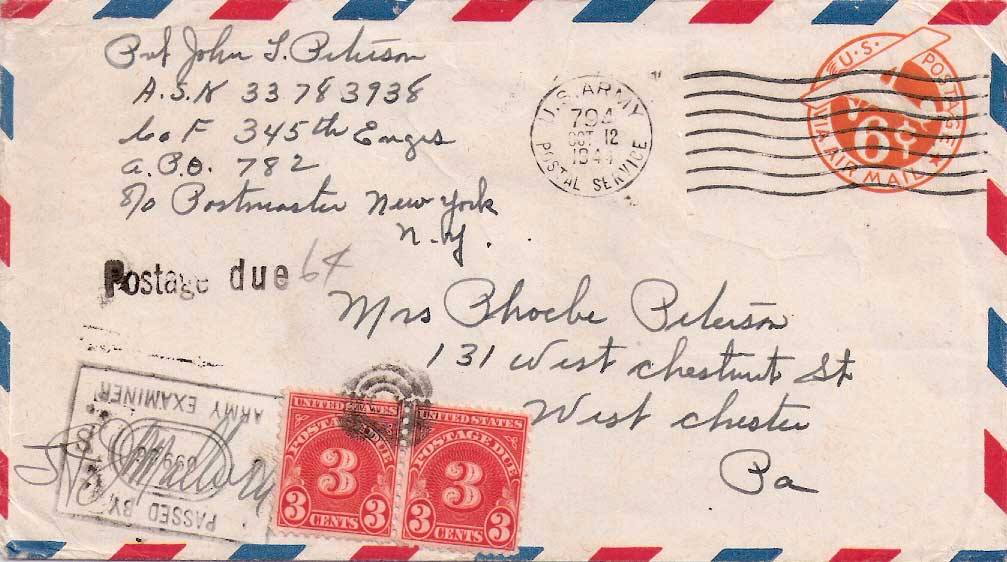 Pvt John L. Peterson
A.S.N 33 783938
Co F 345th Engrs
A.P.O. 782
c/o Postmaster New York
N.Y.
U.S. ARMY
794
OCT 12
1944
POSTAL SERVICE
U.S. POSTAGE
6¢
VIA AIR MAIL
Postage due 6¢
Mrs Phoebe Peterson
131 West Chestnut St
West Chester
Pa
PASSED BY
ARMY EXAMINER
UNITED STATES
POSTAGE DUE
3
3 CENTS 3
UNITED STATES
POSTAGE DUE
3
3 CENTS 3